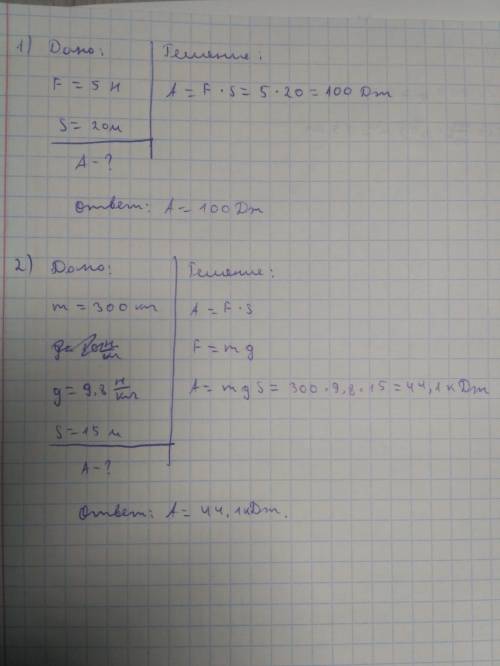 1) Дано: Решение:
F = 5 Н A = F · S = 5 · 20 = 100 Дж
S = 20м
A - ?
Ответ: A = 100 Дж
2) Дано: Решение:
m = 300 кг A = F · S
F = mg
g = 9,8 Н/кг A = mgS = 300 · 9,8 · 15 = 44,1 кДж
S = 15 м
A - ?
Ответ: A = 44,1кДж.